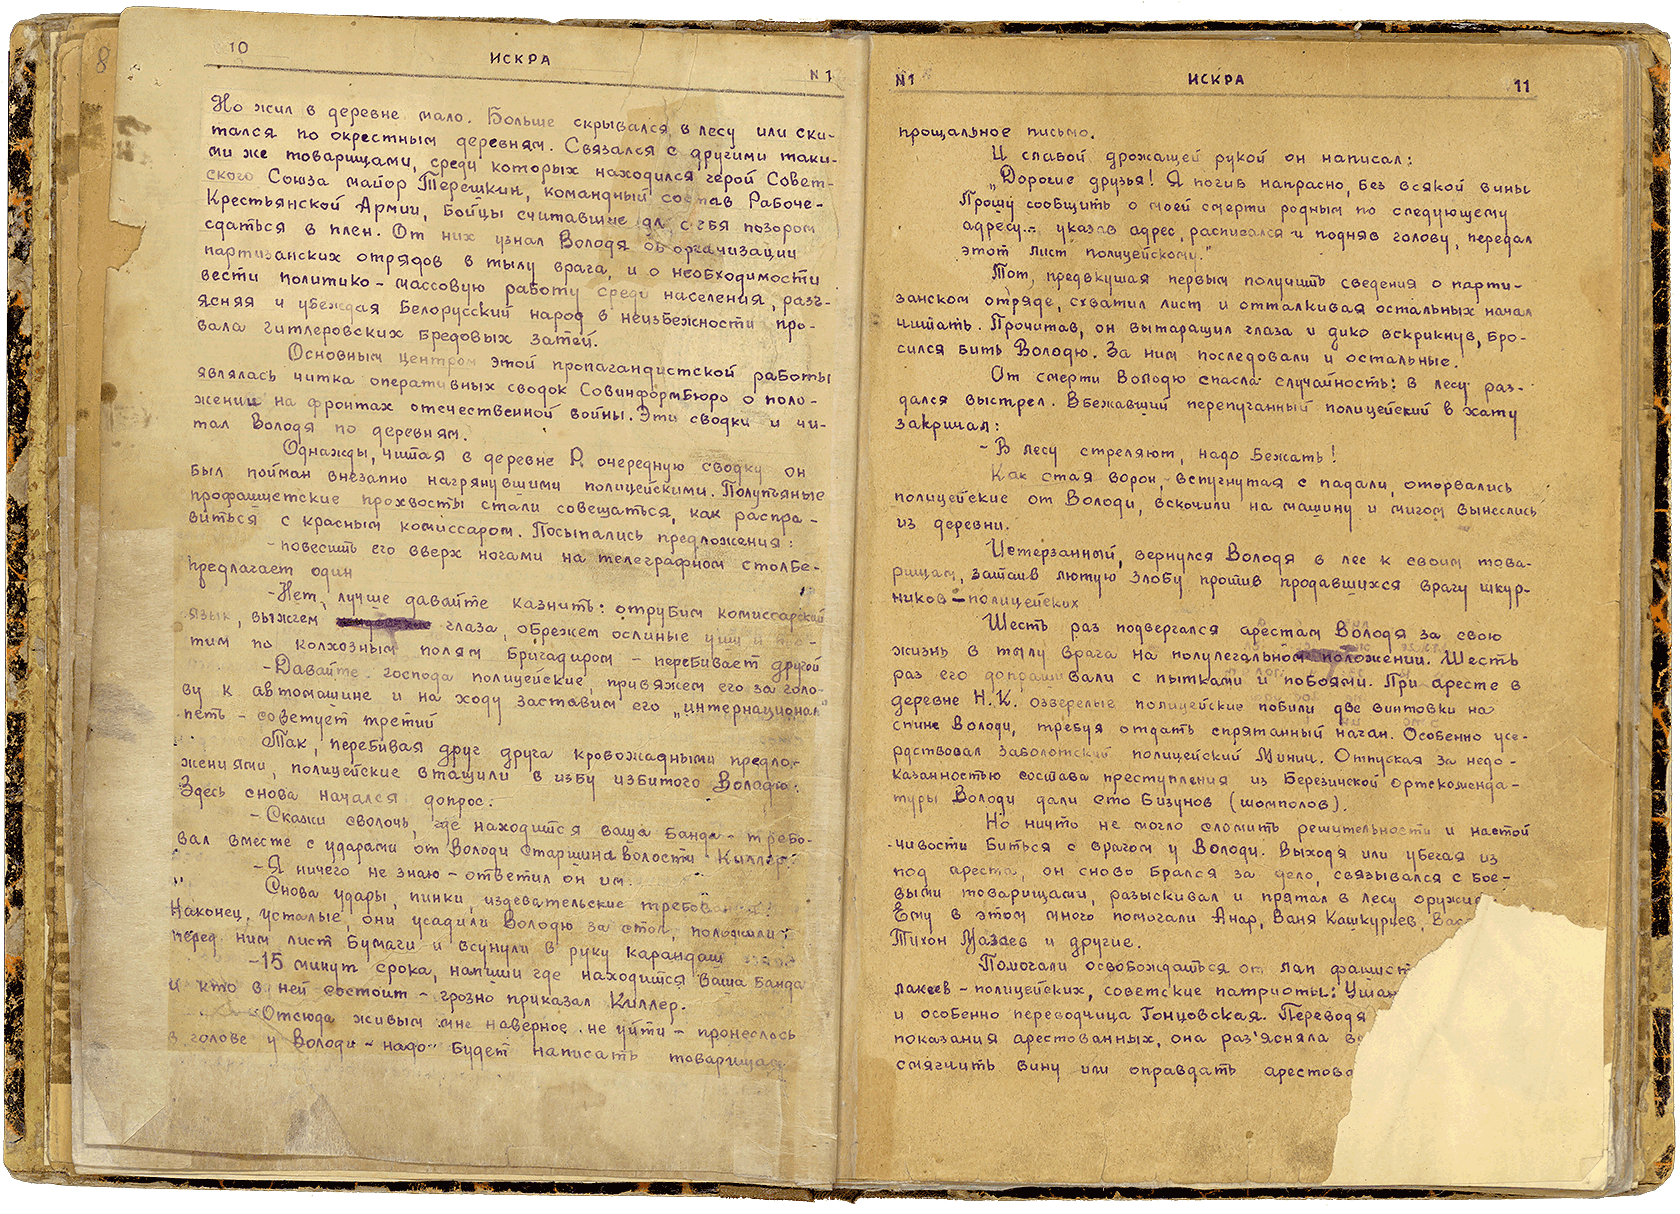 10
ИСКРА
N 1
Но жил в деревне мало. Больше скрывался в лесу или ски-
тался по окрестным деревням. Связался с другими таки-
ми же товарищами, среди которых находился герой Совет-
ского Союза майор Терешкин, командный состав Рабоче-
Крестьянской Армии, бойцы считавшие для себя позором
сдаться в плен. От них узнал Володя об организации
партизанских отрядов в тылу врага, и о необходимости
вести политико-массовую работу среди населения, разъ-
ясняя и убеждая Белорусский народ в неизбежности про-
вала гитлеровских бредовых затей.
Основным центром этой пропагандистской работы
являлась читка оперативных сводок Совинформбюро о поло-
жении на фронтах отечественной войны. Эти сводки и чи-
тал Володя по деревням.
Однажды, читая в деревне Р. очередную сводку он
был пойман внезапно нагрянувшими полицейскими. Полупьяные
профашистские прохвосты стали совещаться, как распра-
виться с красным комиссаром. Посыпались предложения:
- повесить его вверх ногами на телеграфном столбе-
предлагает один
- Нет, лучше давайте казнить: отрубим комиссарский
язык, выжжем глаза, обрежем ослиные уши и
тим по колхозным полям бригадиром - перебивает другой
- Давайте господа полицейские, привяжем его за голо-
ву к автомашине и на ходу заставим его „интернационал"
петь - советует третий
Так, перебивая друг друга кровожадными предло-
жениями, полицейские втащили в избу избитого Володю.
Здесь снова начался допрос.
- Скажи сволочь, где находится ваша банда - требо-
вал вместе с ударами от Володи старшина волости Киллер.
- Я ничего не знаю - ответил он им.
Снова удары, пинки, издевательские требования.
Наконец, усталые, они усадили Володю за стол, положили
перед ним лист бумаги и всунули в руку карандаш
- 15 минут срока, напиши где находится ваша банда
и кто в ней состоит - грозно приказал Киллер.
"Отсюда живым мне наверное не уйти - пронеслось
в голове у Володи - надо будет написать товарищам
N 1
ИСКРА
11
прощальное письмо.
И слабой дрожащей рукой он написал:
„Дорогие друзья! Я погиб напрасно, без всякой вины
Прошу сообщить о моей смерти родным по следующему
адресу.- указав адрес, расписался и подняв голову, передал
этот лист полицейскому."
Тот, предвкушая первым получить сведения о парти-
занском отряде, схватил лист и отталкивая остальных начал
читать. Прочитав, он вытаращил глаза и дико вскрикнув, бро-
сился бить Володю. За ним последовали и остальные.
От смерти Володю спасла случайность: в лесу раз-
дался выстрел. Вбежавший перепуганный полицейский в хату
закричал:
- В лесу стреляют, надо бежать!
Как стая ворон, вспугнутая с падали, оторвались
полицейские от Володи, вскочили на машину и мигом вынеслись
из деревни.
Истерзанный, вернулся Володя в лес к своим това-
рищам, затаив лютую злобу против продавшихся врагу шкур-
ников-полицейских
Шесть раз подвергался арестам Володя за свою
жизнь в тылу врага на полулегальном положении. Шесть
раз его допрашивали с пытками и побоями. При аресте в
деревне Н.К. озверелые полицейские побили две винтовки на
спине Володи, требуя отдать спрятанный наган. Особенно усе-
рдствовал Заболотский полицейский Минич. Отпуская за недо-
казанностью состава преступления из Березинской орткоменда-
туры Володи дали сто бизунов (шомполов).
Но ничто не могло сломить решительности и настой
-чивости биться с врагом у Володи. Выходя или убегая из
под ареста, он снова брался за дело, связывался с бое-
выми товарищами, разыскивал и прятал в лесу оружие
Ему в этом много помогали Анар, Ваня Кашкурцев,
Тихон Мазаев и другие.
Помогали освобождаться от лап фашист
лакеев - полицейских, советские патриоты:
и особенно переводчица Гонцовская. Переводя
показания арестованных, она раз'ясняла
смягчить вину или оправдать